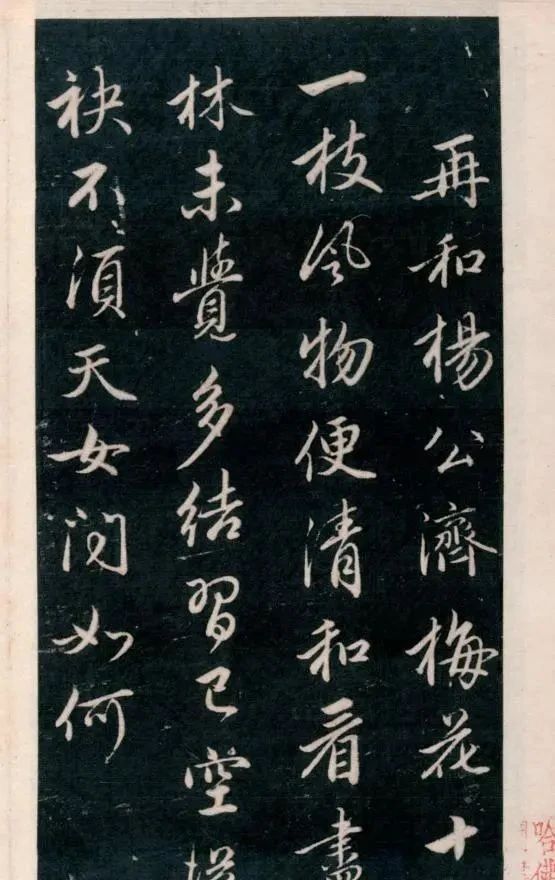 再和楊公濟梅花十
一枝風物便清和看盡
林未覺多結習已空
袂不須天女問如何
哈佛